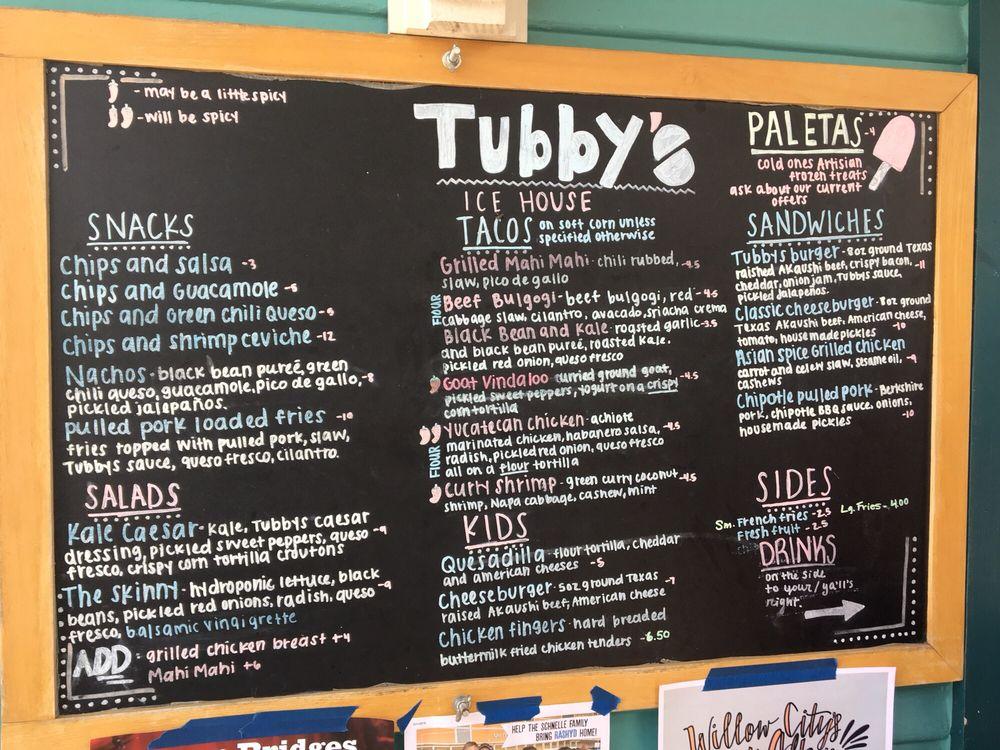 - may be a little spicy
- will be spicy
Tubby's
ICE HOUSE
SNACKS
Chips and salsa -3
Chips and Guacamole -8
Chips and Green Chili Queso -8
Chips and shrimp ceviche -12
Nachos - black bean pureé, green
chili queso, guacamole, pico de gallo, -8
pickled jalapaños.
pulled pork loaded fries -10
fries topped with pulled pork, slaw,
Tubbys sauce, queso fresco, cilantro.
SALADS
Kale Caesar - Kale, Tubbys caesar
dressing, pickled sweet peppers, queso -9
fresco, crispy corn tortilla croutons
The skinny - hydroponic lettuce, black
beans, pickled red onions, radish, queso -9
fresco, balsamic vinaigrette
ADD - grilled chicken breast +4
Mahi Mahi +6
TACOS on soft corn unless
specified otherwise
Grilled Mahi Mahi - chili rubbed, -4.5
slaw, pico de gallo
FLOUR
Beef Bulgogi - beef bulgogi, red -4.5
cabbage slaw, cilantro, avocado, sriacha crema
Black Bean and Kale - roasted garlic -3.5
and black bean pureé, roasted kale,
pickled red onion, queso fresco
Goat Vindaloo curried ground goat, -4.5
pickled sweet peppers, yogurt on a crispy
corn tortilla
FLOUR
Yucatecan Chicken - achiote
marinated chicken, habanero salsa, -4.5
radish, pickled red onion, queso fresco
all on a flour tortilla
Curry Shrimp - green curry coconut -4.5
shrimp, Napa cabbage, cashew, mint
KIDS
Quesadilla - flour tortilla, cheddar
and american cheeses -5
Cheeseburger - 5oz ground Texas -7
raised Akaushi beef, American cheese
Chicken fingers - hard breaded
buttermilk fried chicken tenders -6.50
PALETAS -4
cold ones Artisian
frozen treats
ask about our current
offers
SANDWICHES
Tubbys burger - 8oz ground Texas
raished Akaushi beef, crispy bacon, -11
cheddar, onion jam, Tubbys sauce,
pickled jalapeños.
Classic cheeseburger - 8oz ground
Texas Akaushi beef, American cheese,
tomato, house made pickles -10
Asian spice Grilled chicken
carrot and celery slaw, sesame oil, -9
cashews
Chipotle pulled pork - Berkshire
pork, chipotle BBQ sauce, onions,
housemade pickles -10
SIDES
Sm. French fries - 2.5 Lg. Fries - 4.00
Fresh fruit - 2.5
DRINKS
on the side
to your/ya'll's
right.
Bridges
HELP THE SCHNELLE FAMILY
BRING RASHYD HOME!
Willow City's